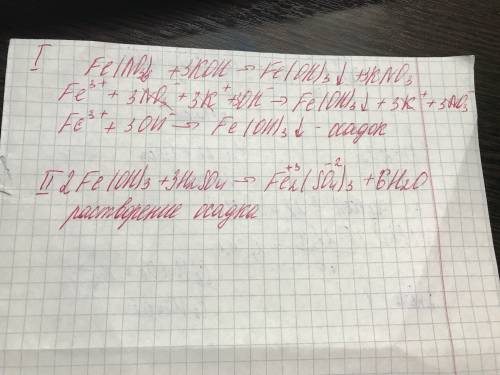 I
Fe(NO3)3 + 3KOH → Fe(OH)3↓ + 3KNO3
Fe³⁺ + 3NO3⁻ + 3K⁺ + 3OH⁻ → Fe(OH)3↓ + 3K⁺ + 3NO3⁻
Fe³⁺ + 3OH⁻ → Fe(OH)3↓ - осадок
II 2Fe(OH)3 + 3H2SO4 → Fe2⁺³(SO4)3⁻² + 6H2O
растворение осадка